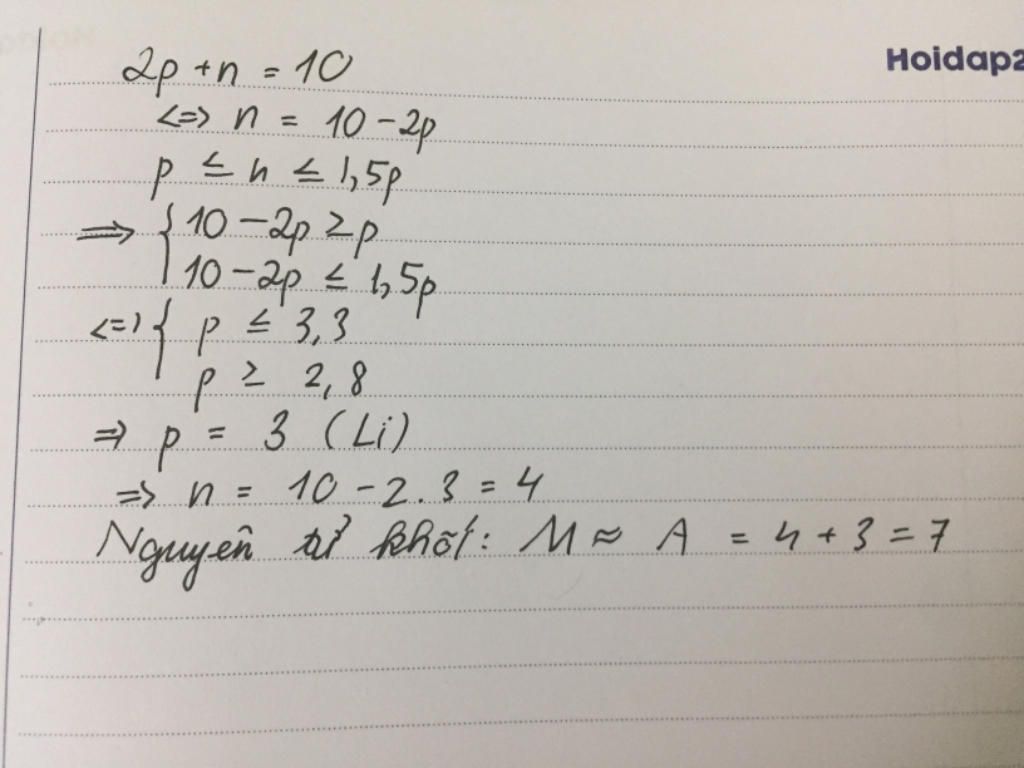 Hoidap2
2p + n = 10
<=> n = 10 - 2p
p ≤ n ≤ 1,5p
=> { 10 - 2p ≥ p
10 - 2p ≤ 1,5p
<=> { p ≤ 3,3
p ≥ 2,8
=> p = 3 (Li)
=> n = 10 - 2.3 = 4
Nguyên tử khối: M ≈ A = 4 + 3 = 7